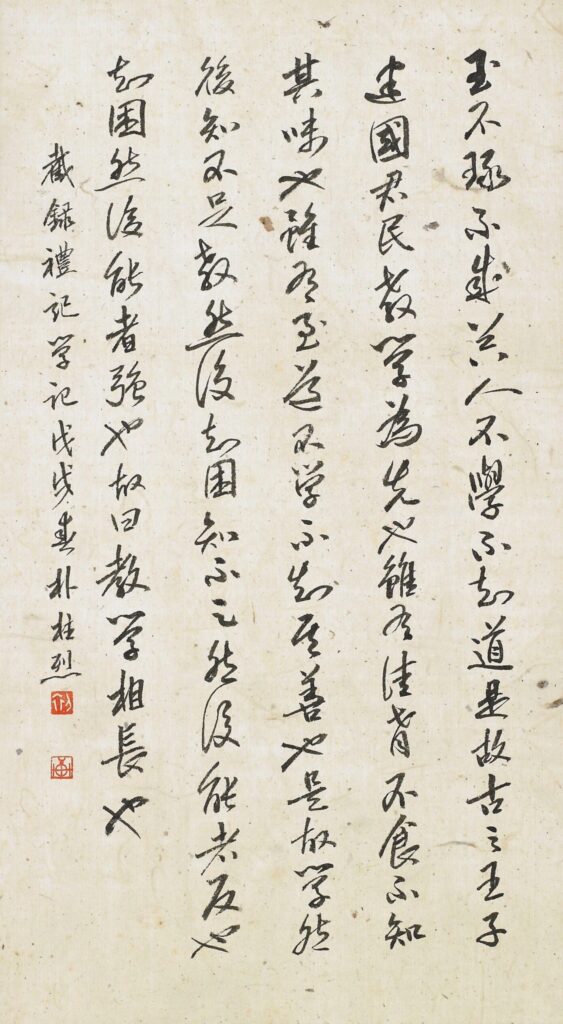 玉不琢不成器人不學不知道是故古之王子
建國君民教学為先也雖有佳肴不食不知
其味也雖有至道不学不知其善也是故学然
後知不足教然後知困知不足然後能者反也
知困然後能者強也故曰教学相長也
截録禮記学記戊戌春朴桂烈